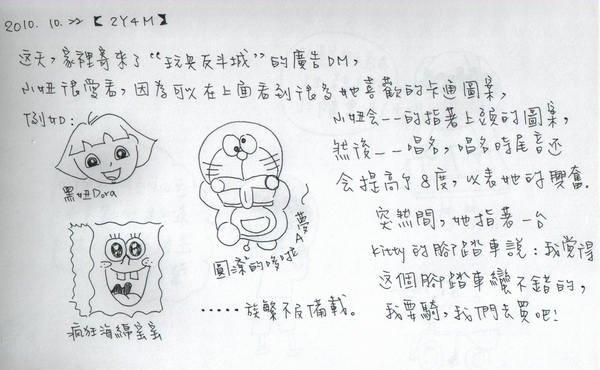 2010. 10. 22 【 2Y4M 】
這天，家裡寄來了“玩具反斗城”的廣告DM，
小妞很愛看，因為可以在上面看到很多她喜歡的卡通圖案，
例如：
小妞会一一的指著上頭的圖案，
然後一一唱名，唱名時尾音还
会提高了8度，以表她的興奮.
黑妞Dora
圓滾的哆啦
A夢
突然間，她指著一台
Kitty的腳踏車說：我覺得
這個腳踏車蠻不錯的，
我要騎，我們去買吧！
瘋狂海綿寶寶
‧‧‧‧‧族繁不及備載。